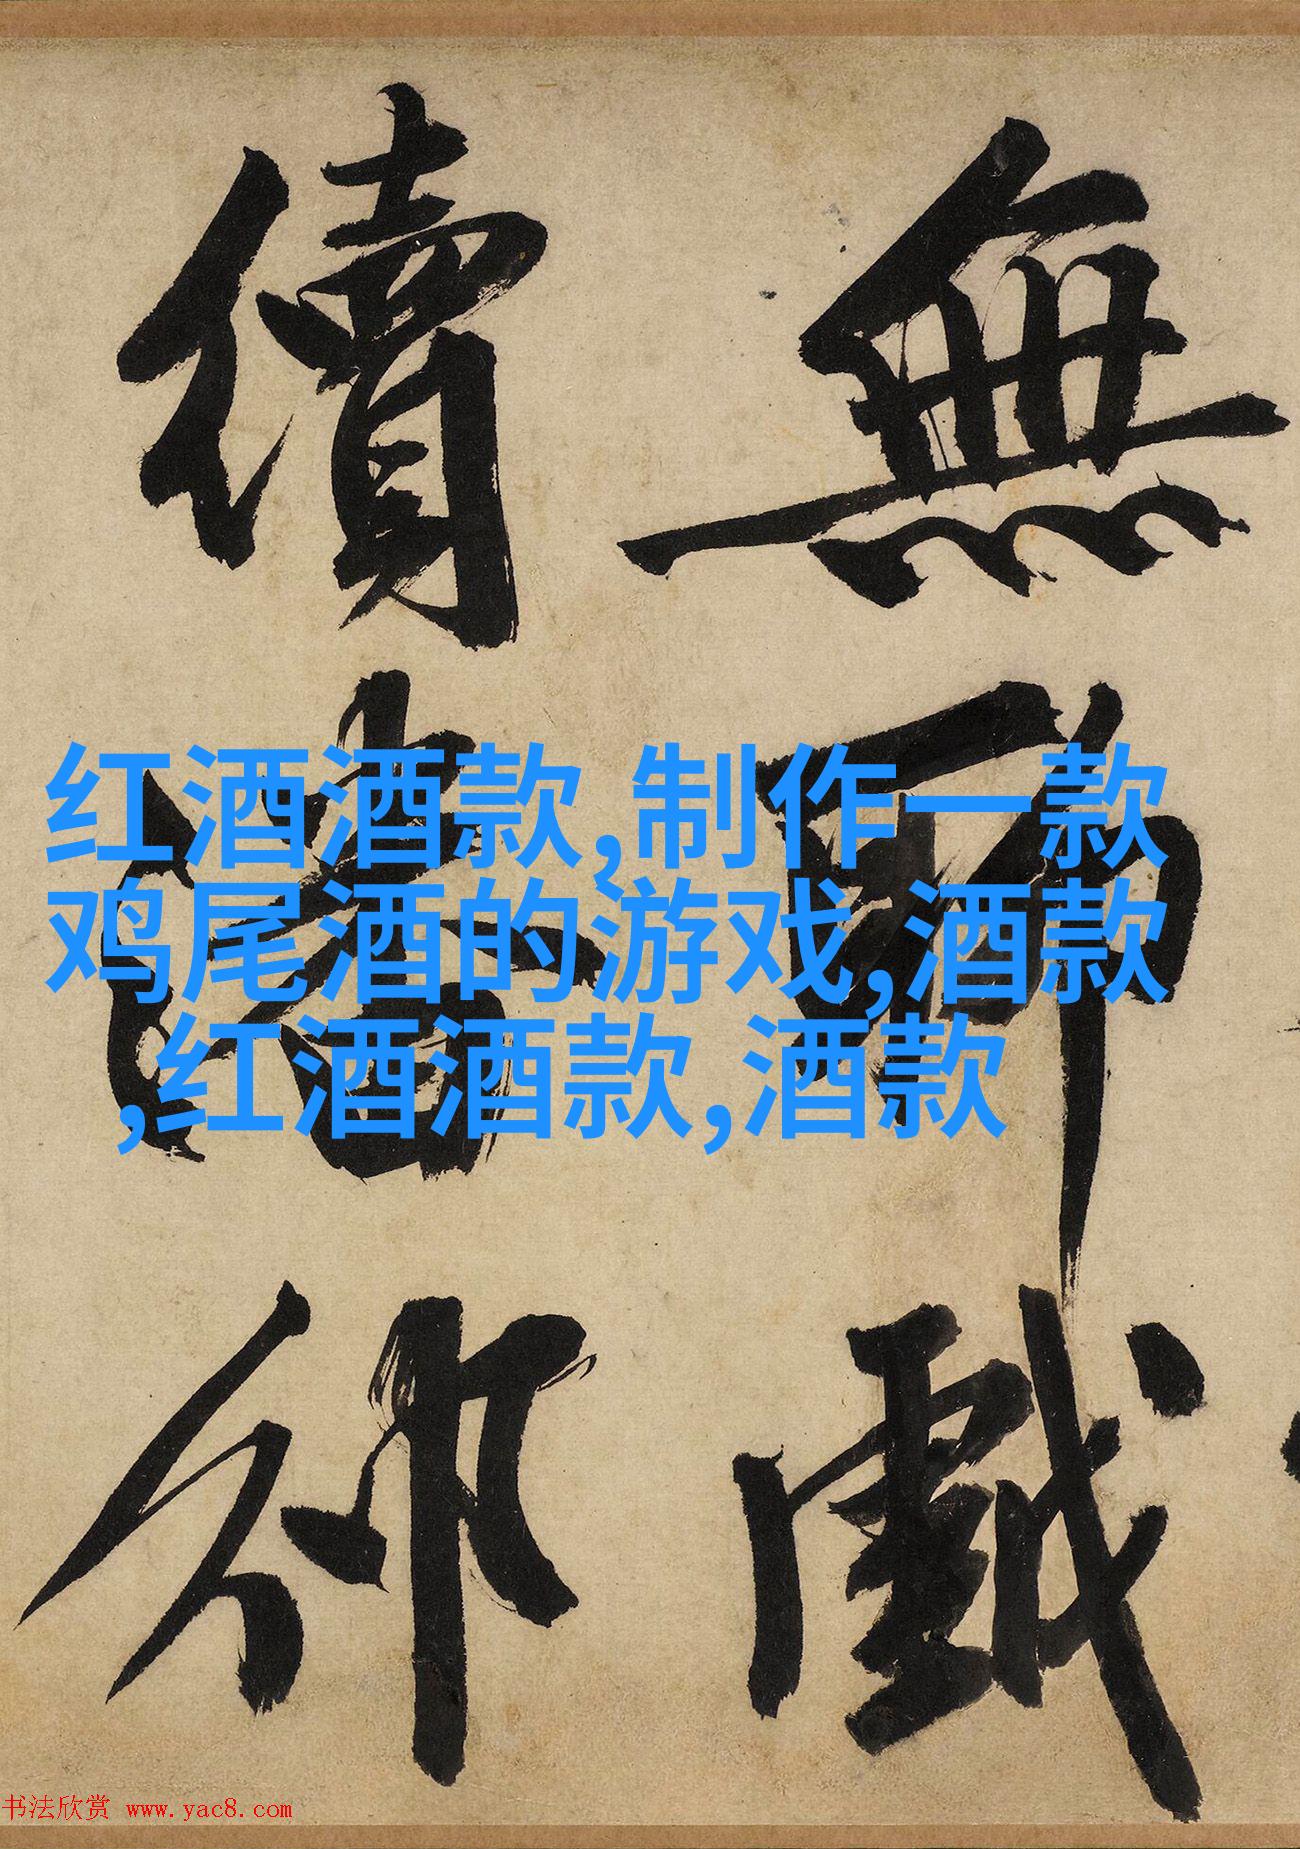 無
戲
續
红酒酒款,制作一款
鸡尾酒的游戏,酒款
,红酒酒款,酒款
书法欣赏 www.yac8.com